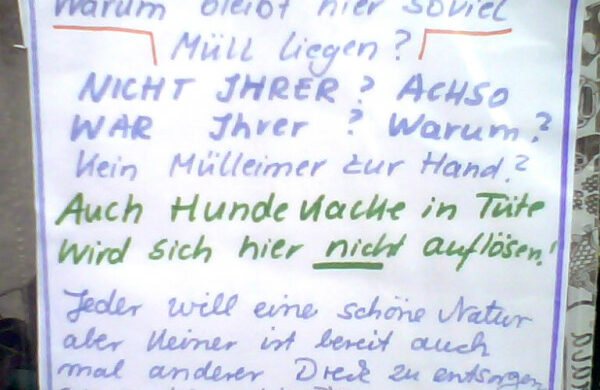 Warum bleibt hier soviel
Müll liegen?
NICHT IHRER? ACHSO
WAR Ihrer? Warum?
Kein Mülleimer zur Hand?
Auch Hundekacke in Tüte
wird sich hier nicht auflösen!
Jeder will eine schöne Natur
aber keiner ist bereit auch
mal anderer Dreck zu entsorgen